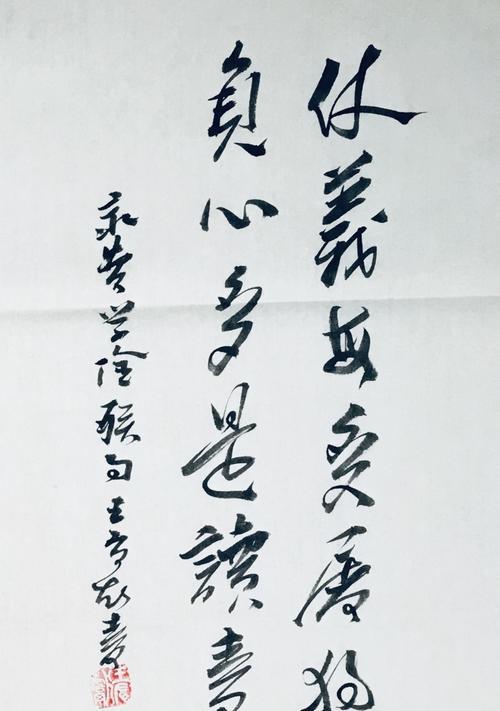 仗義每多屠狗
負心多是讀書
录曹学佺联句 王